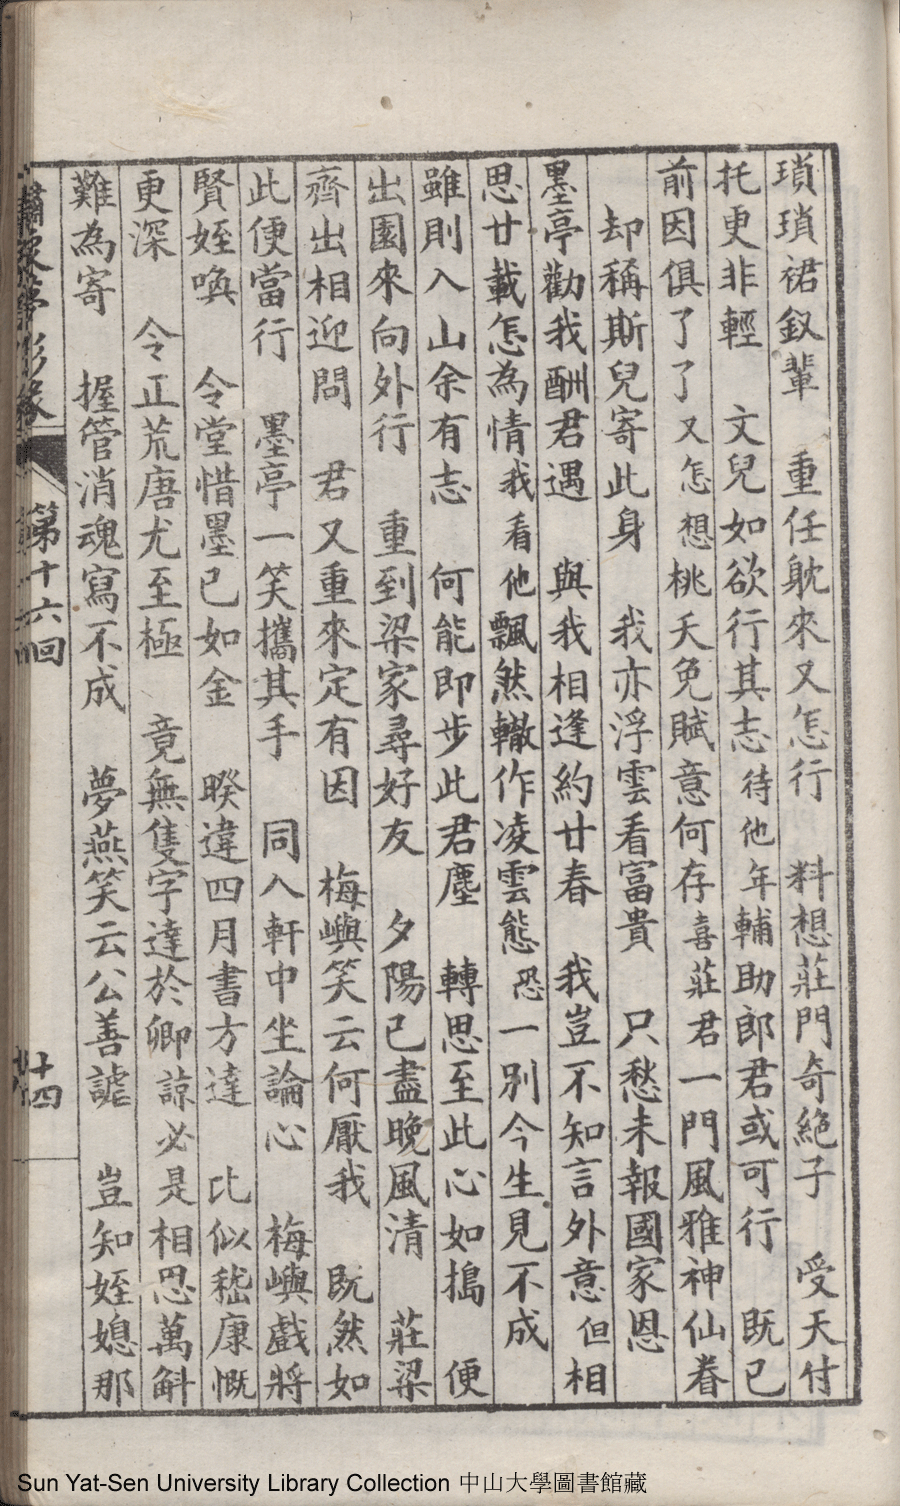 瑣瑣裙釵輩　重任躭來又怎行　料想莊門奇絶子　受天付
托更非輕　文兒如欲行其志待他年輔助郎君或可行　既已
前因俱了了又怎想桃夭免賦意何存喜莊君一門風雅神仙眷
却稱斯兒寄此身　我亦浮雲看富貴　只愁未報國家恩
墨亭勸我酬君遇　與我相逢約廿春　我豈不知言外意但相
思廿載怎為情我看他飄然轍作凌雲態恐一別今生見不成
雖則入山余有志　何能即步此君塵　轉思至此心如搗　便
出園來向外行　重到梁家尋好友　夕陽已盡晚風清　莊梁
齊出相迎問　君又重來定有因　梅嶼笑云何厭我　既然如
此便當行　墨亭一笑攜其手　同入軒中坐論心　梅嶼戲將
賢姪喚　令堂惜墨已如金　暌違四月書方達　比似嵇康慨
更深　令正荒唐尤至極　竟無隻字達於卿諒必是相思萬斛
難為寄　握管消魂寫不成　夢燕笑云公善謔　豈知姪媳那
第十六回
十四
Sun Yat-Sen University Library Collection 中山大學圖書館藏